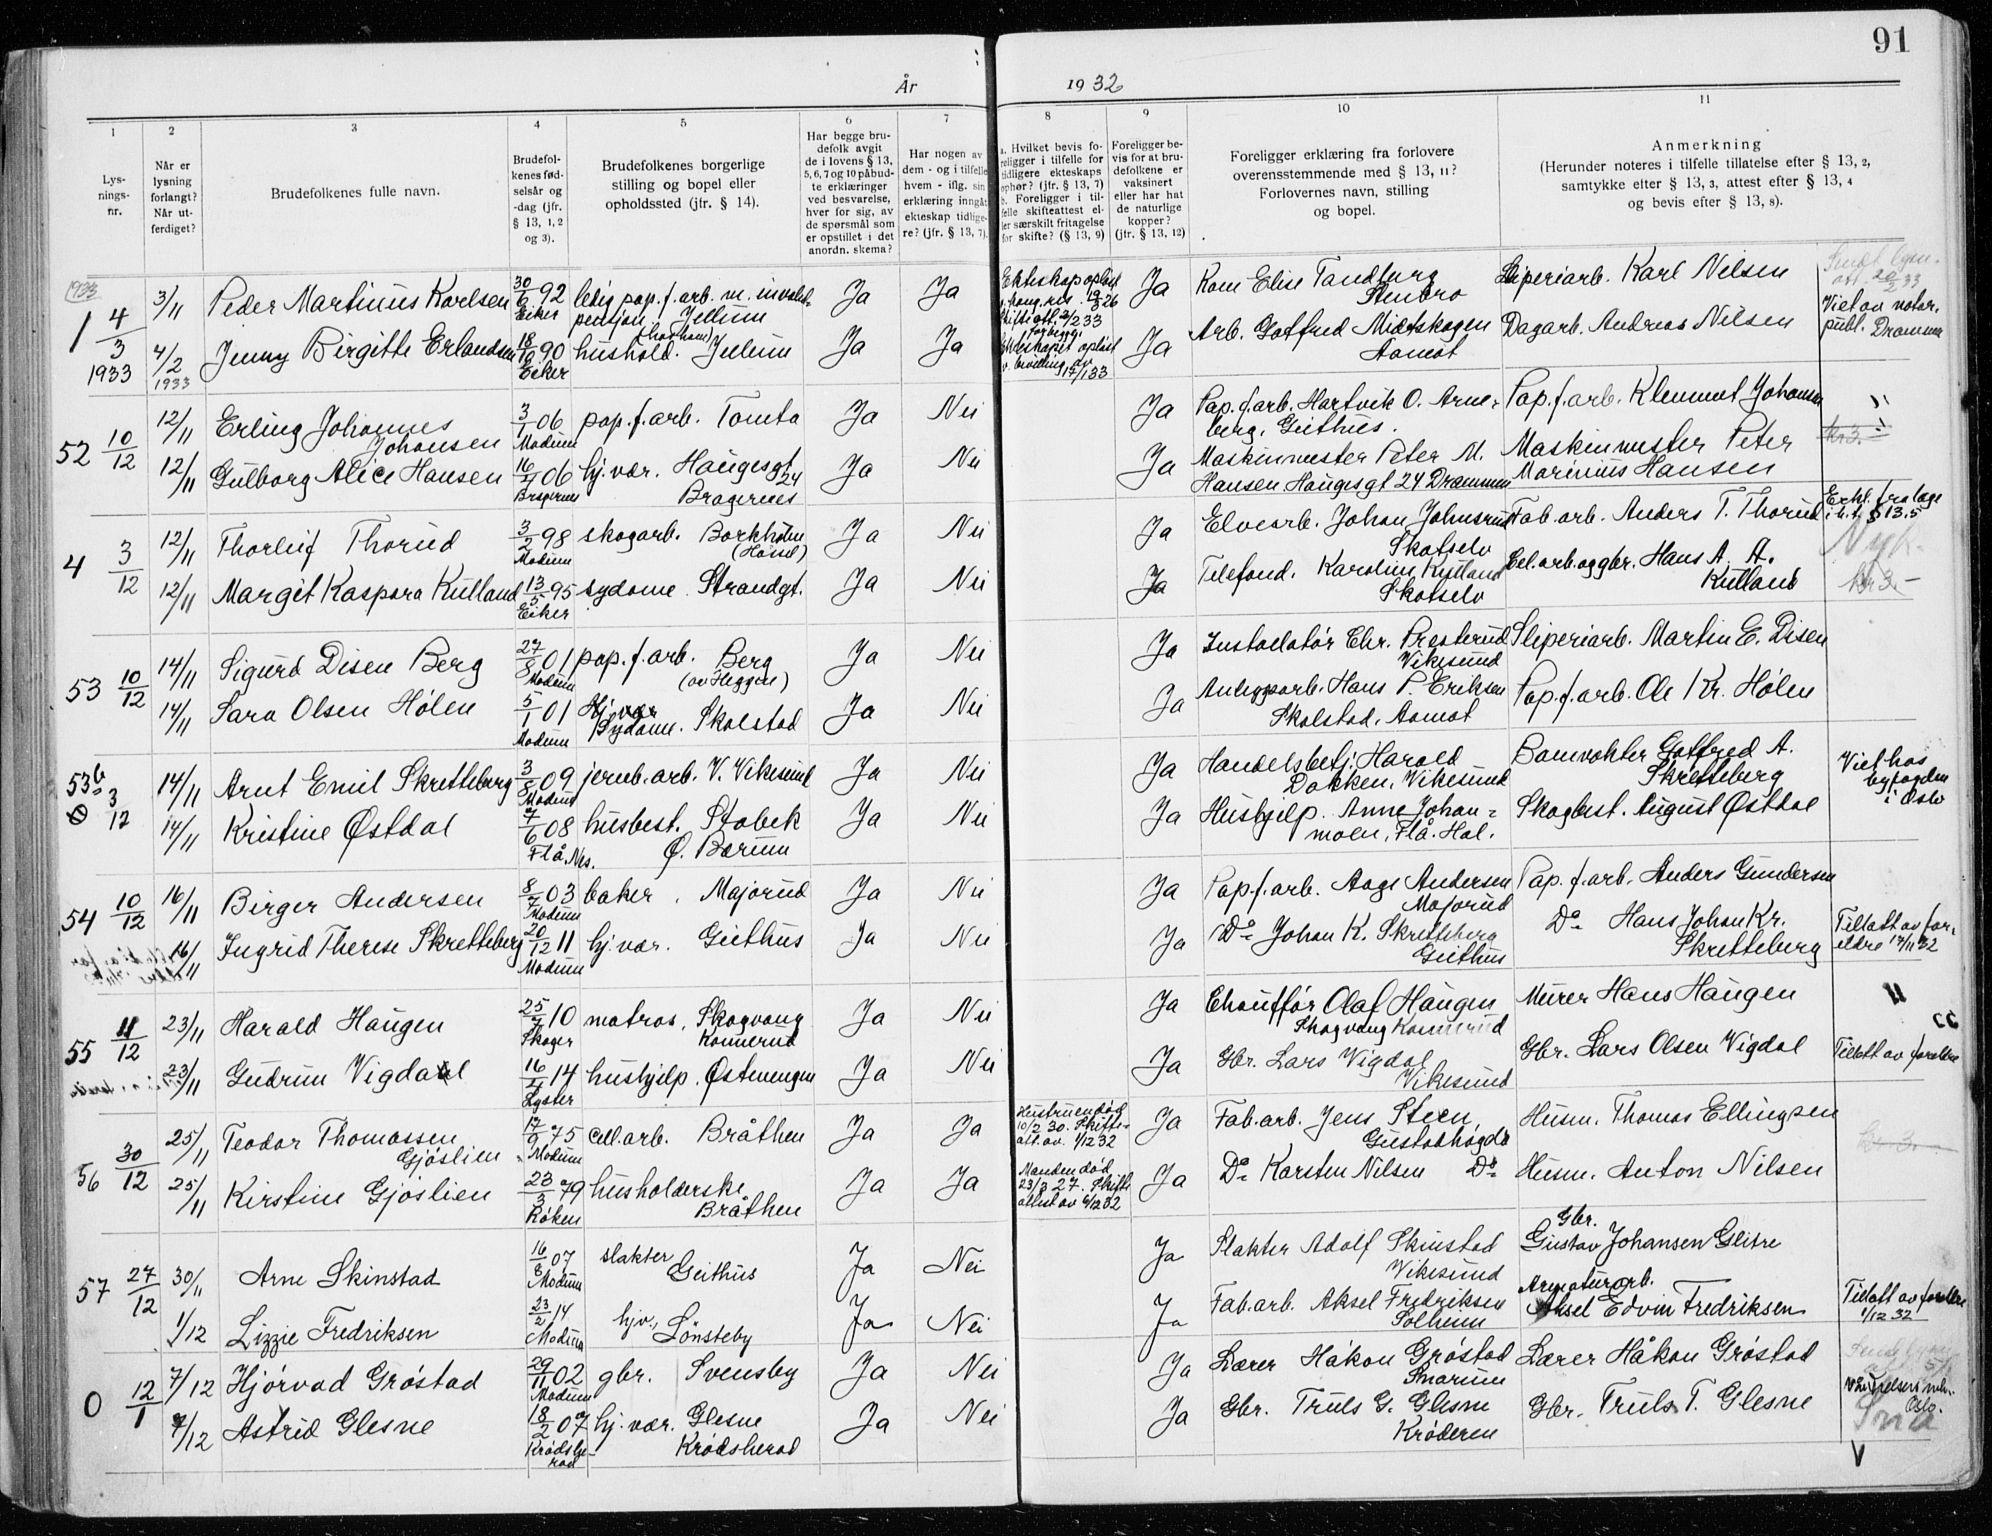 91
År 1932
1 2 3 4 5 6 7 8 9 10 11
Lys-
nings-
nr.
Når er
lysning
forlangt?
Når ut-
ferdiget?
Brudefolkenes fulle navn.
Brudefol-
kenes fød-
selsår og
-dag (jfr.
§ 13, 1, 2
og 3).
Brudefolkenes borgerlige
stilling og bopel eller
opholdssted (jfr. § 14).
Har begge bru-
defolk avgit
de i lovens § 13,
5, 6, 7 og 10 påbud-
te erklæringer
ved besvarelse,
hver for sig, av
de spørsmål som
er opstillet i det
anordn. skema?
Har nogen av
dem - og i tilfelle
hvem - iflg. sin
erklæring inngått
ekteskap tidlige-
re? (jfr. § 13, 7).
a. Hvilket bevis fo-
religger i tilfelle for
tidligere ekteskaps
ophør? (jfr. § 13, 7)
b. Foreligger i til-
felle skifteattest el-
ler særskilt fritagelse
for skifte? (§ 13, 9)
Foreligger be-
vis for at bru-
defolkene er
vaksinert
eller har hat
de naturlige
kopper?
(jfr. § 13, 12)
Foreligger erklæring fra forlovere
overensstemmende med § 13, 11?
Forlovernes navn, stilling
og bopel.
Anmerkning
(Herunder noteres i tilfelle tillatelse efter § 13, 2,
samtykke efter § 13, 3, attest efter § 13, 4
og bevis efter § 13, 8).
1933
1 4/3 1933 3/11 Peder Martinius Karlsen 30/6 92 Eiker ledig pap.f.arb. m. invalid-
pensjon. Jellum Ja Ja Ekteskap opløst
19/3 26
2/2 33 Ja Kom Elin Tandberg
Stenbro Sliperiarb. Karl Nilsen 20/2 33
4/2 1933 Jenny Birgitte Erlandsen 18/10 90 Eiker hushold. Jellum Ja Ja Ekteskapet opløst
v. bevilling av
17/1 33 Ja Arb. Gotfred Midtskogen
Aamot Dagarb. Andreas Nilsen Viet av notar.
publ. Drammen
52 10/12 12/11 Erling Johannes
Johansen 3/1 06 Modum pap.f.arb. Tomta Ja Nei Ja Pap.f.arb. Hartvik O. Arne-
berg, Geithus. Pap.f.arb. Klemmet Johansen
12/11 Gulborg Alice Hansen 16/4 06 Bragernes hj.vær. Haugesgt
24
Bragernes Ja Nei Ja Maskinmester Peter M.
Hansen Haugesgt 24 Drammen Maskinmester Peter
Marinius Hansen kr 3.-
4 3/12 12/11 Thorleif Thorud 3/2 98 Modum skogarb. Borkholm
(Hassel) Ja Nei Ja Elvearb. Johan Johnsrud
Skotselv Fab.arb. Anders T. Thorud Erkl. fra læge
i.h.t. § 13.5
12/11 Margit Kaspara Kulland 13/5 95 Eiker sydame. Strandgt. Ja Nei Ja Telefond. Karoline Kulland
Skotselv Cel.arb. og gbr. Hans A. A.
Kulland kr 3.-
53 10/12 14/11 Sigurd Disen Berg 27/8 01 Modum pap.f.arb. Berg
(av Heggen) Ja Nei Ja Installatør Chr. Presterud
Vikesund Sliperiarb. Martin E. Disen
14/11 Sara Olsen Hólen 5/1 01 Modum Hj.vær
Sydame. Skalstad Ja Nei Ja Anleggsarb. Hans P. Eriksen
Skalstad, Aamot Pap.f.arb. Ole Kr. Hólen
53b 3/12 14/11 Arnt Emil Skretteberg 3/8 09 Modum jernb.arb. V. Vikesund Ja Nei Ja Handelsbetj. Harald
Dokken, Vikesund Bomvokter Gotfred A.
Skretteberg Viet hos
byfogden
i Oslo
14/11 Kristine Østdal 7/6 08 Flå, Nes. husbest. Stabek
Ø. Bærum Ja Nei Ja Hushjelp. Anne Johan-
moen, Flå. Hal. Skogbest. August Østdal
54 10/12 16/11 Birger Andersen 8/7 03 Modum baker. Majorud Ja Nei Ja Pap.f.arb. Aage Andersen
Majorud Pap.f.arb. Anders Gundersen
16/11 Ingrid Therese Skretteberg 20/12 11 Modum hj.vær. Geithus Ja Nei Ja Do Johan K. Skretteberg
Geithus Do Hans Johan Kr.
Skretteberg Tillatt av for-
eldre 17/11 32
55 11/12 23/11 Harald Haugen 25/7 10 Skoger matros, Skogvang
Konnerud Ja Nei Ja Chauffør Olaf Haugen
Skogvang Konnerud Murer Hans Haugen
23/11 Gudrun Vigdal 16/4 14 Lyster hushjelp. Østenengen Ja Nei Ja Gbr. Lars Vigdal
Vikesund Gbr. Lars Olsen Vigdal Tillatt av foreldre
56 30/12 25/11 Teodor Thomassen
Gjóslien 17/9 75 Modum cell.arb. Bråthen Ja Ja Hustruen død
10/2 30. Skifte-
att. av 1/12 32 Ja Fab.arb. Jens Steen,
Gustadhøgda Husm. Thomas Ellingsen
25/11 Kirstine Gjóslien 23/3 79 Røken husholderske
Bråthen Ja Ja Manden død
23/3 27. Skift.
attest av 6/12 32 Ja Do Karsten Nilsen Do Husm. Anton Nilsen
57 27/12 30/11 Arne Skinstad 16/8 07 Modum slakter
Geithus Ja Nei Ja Slakter Adolf Skinstad
Vikesund Gbr.
Gustav Johansen Glitre
1/12 Lizzie Fredriksen 23/2 14 Modum hjv., Lønsteby Ja Nei Ja Fab.arb. Aksel Fredriksen
Solheim Armaturarb.
Aksel Edvin Fredriksen Tillatt av foreldre
1/12 32
0 12/1 7/12 Hjórvad Gróstad 29/11 02 Modum gbr. Svensby Ja Nei Ja Lærer Håkon Gróstad
Snarum Lærer Håkon Gróstad
7/12 Astrid Glesne 18/2 07 Krødshe-
rad hj.vær. Glesne
Krødsherad Ja Nei Ja Gbr. Truls G. Glesne
Krøderen Gbr. Truls T. Glesne Oslo.